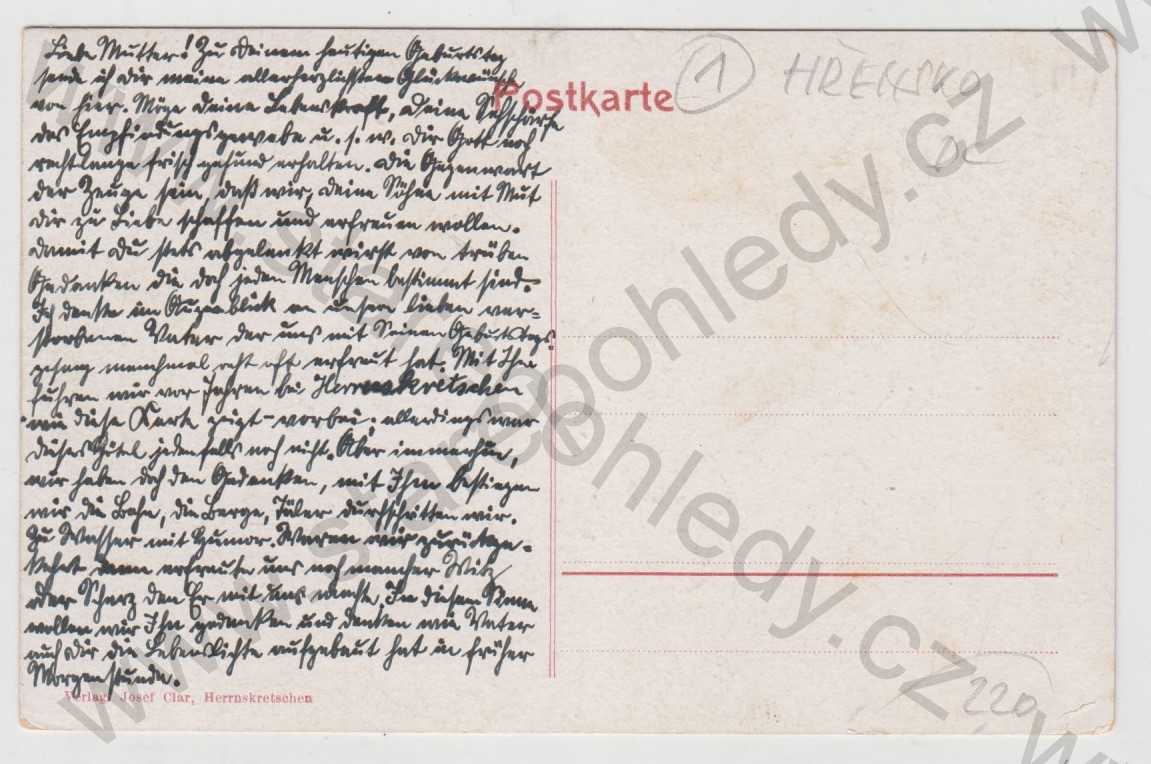 Liebe Mutter! Zu Deinem heutigen Geburtstag
sende ich Dir meine allerherzlichsten Glückwünsche
von hier. Möge Deine Lebenskraft, Deine Sehschärfe
des Empfindungsgewebe u. s. w. Dir Gott noch
recht lange frisch gesund erhalten. Die Gegenwart
der Zeuge sein, daß wir, Deine Söhne mit Mut
Dir zu Liebe schaffen und erfreuen wollen.
Damit Du stets abgelenkt wirst von trüben
Gedanken die doch jedem Menschen bestimmt sind.
Ich denke im Augenblick an unsern lieben ver-
storbenen Vater der uns mit Seinem Geburtstags-
gesang manchmal recht oft erfreut hat. Mit Ihm
fuhren wir vor Jahren bei Herrnskretschen
wie diese Karte zeigt - vorbei; allerdings war
dieses Hotel jedenfalls noch nicht. Aber immerhin,
wir haben doch den Gedanken, mit Ihm bestiegen
wir die Bahn, die Berge, Täler durchschritten wir.
Zu Wasser mit Humor. Waren wir zurückge-
kehrt dann erfreute uns noch mancher Witz
oder Scherz den Er mit uns machte. In diesem Sinne
wollen wir Ihm gedenken und denken wie Vater
auch Dir die Lebenslichte aufgebaut hat in früher
Morgenstunde.
Postkarte
1 HŘENSKO
Verlag: Josef Clar, Herrnskretschen
220
www.starepohledy.cz
www.starepohledy.cz